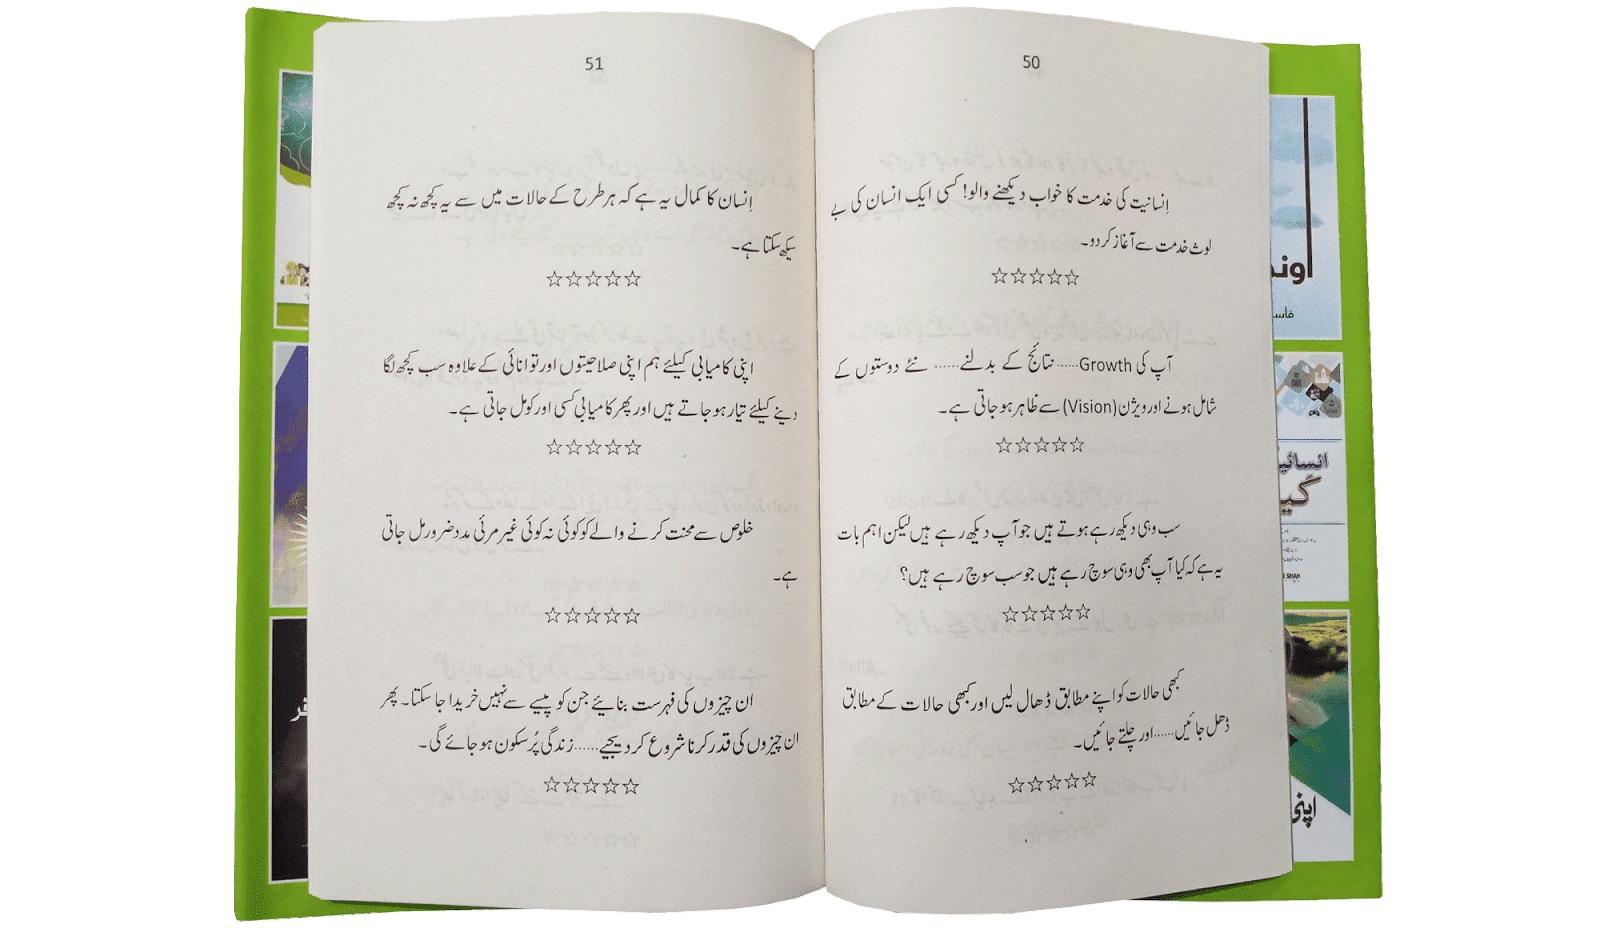 50
اِنسانیت کی خدمت کا خواب دیکھنے والو! کسی ایک انسان کی بے
لوث خدمت سے آغاز کر دو۔
☆☆☆☆☆
آپ کی Growth...... نتائج کے بدلنے...... نئے دوستوں کے
شامل ہونے اور ویژن (Vision) سے ظاہر ہو جاتی ہے۔
☆☆☆☆☆
سب وہی دیکھ رہے ہوتے ہیں جو آپ دیکھ رہے ہیں لیکن اہم بات
یہ ہے کہ کیا آپ بھی وہی سوچ رہے ہیں جو سب سوچ رہے ہیں؟
☆☆☆☆☆
کبھی حالات کو اپنے مطابق ڈھال لیں اور کبھی حالات کے مطابق
ڈھل جائیں......اور چلتے جائیں۔
☆☆☆☆☆
51
اِنسان کا کمال یہ ہے کہ ہر طرح کے حالات میں سے یہ کچھ نہ کچھ
سیکھ سکتا ہے۔
☆☆☆☆☆
اپنی کامیابی کیلئے ہم اپنی صلاحیتوں اور توانائی کے علاوہ سب کچھ لگا
دینے کیلئے تیار ہو جاتے ہیں اور پھر کامیابی کسی اور کو مل جاتی ہے۔
☆☆☆☆☆
خلوص سے محنت کرنے والے کو کوئی نہ کوئی غیر مرئی مدد ضرور مل جاتی
ہے۔
☆☆☆☆☆
ان چیزوں کی فہرست بنائیے جن کو پیسے سے نہیں خریدا جا سکتا۔ پھر
ان چیزوں کی قدر کرنا شروع کر دیجیے......زندگی پُرسکون ہو جائے گی۔
☆☆☆☆☆
اپنی